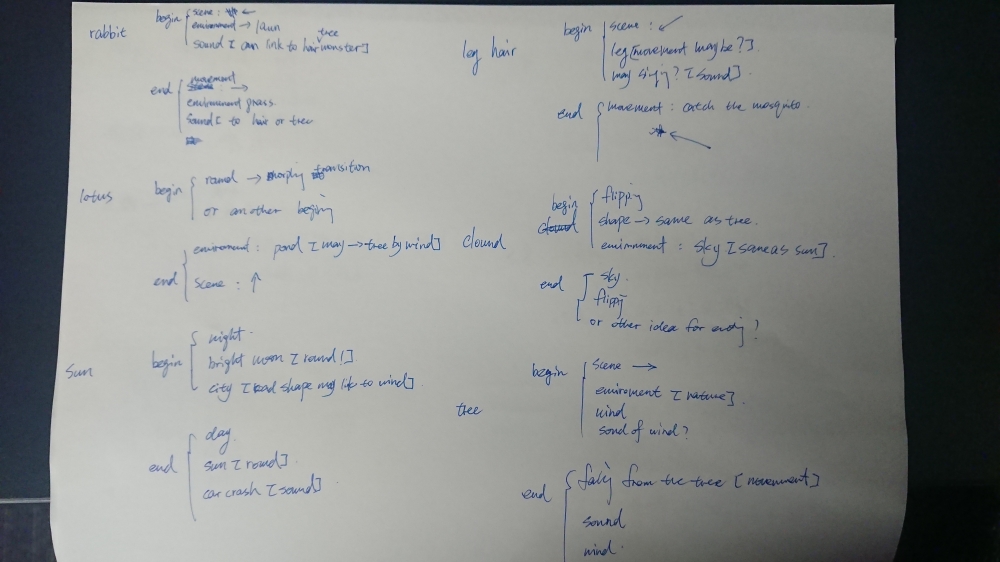 rabbit
begin
scene : ←
enviroment → lawn
tree
sound [ can link to hair monster]
end
movement
scene : →
enviroment grass.
sound [ to hair or tree
lotus
begin
round → morphing transition
or another begining
end
enviroment : pond [ may → tree by wind]
scene : ↑
Sun
begin
night
bright moon [ round ! ]
city [ road shape may link to wind ] .
end
day.
sun [ round ] .
car crash [ sound ]
leg hair
begin
scene : ↙
leg [movement maybe ? ] .
may singing ? [ sound ] .
end
movement : catch the mosquito .
clound
begin
clound
flipping
shape → same as tree .
enviroment : sky [ same as sun ] .
end
sky .
flipping
or other idea for ending ?
tree
begin
scene →
enviroment [ nature ] .
wind
sond of wind ?
end
from the tree [ movement ]
sound
wind .